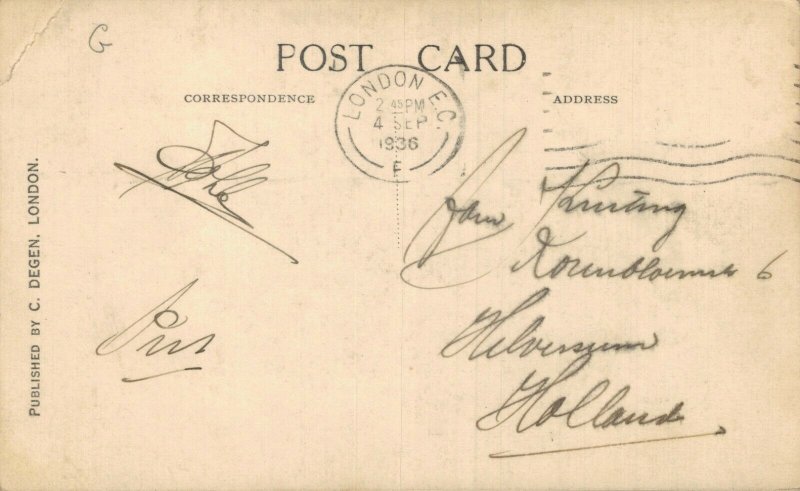 G
POST CARD
CORRESPONDENCE
ADDRESS
LONDON E.C.
2 45 PM
4 SEP
1936
F
PUBLISHED BY C. DEGEN, LONDON.
Korenbloemstr 6
Hilversum
Holland